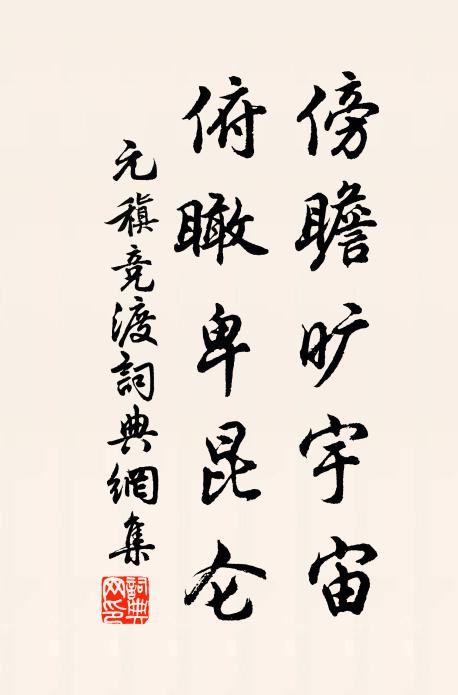 傍瞻旷宇宙
俯瞰卑昆仑
元稹竞渡詞典網集
詞典
网印